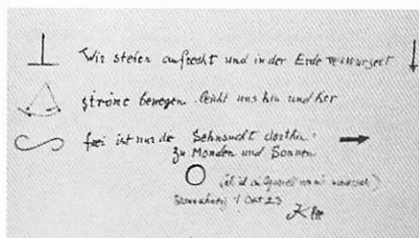 Wir stehen aufrecht und in der Erde verwurzelt
Ströme bewegen leicht uns hin und her
frei ist nur die Sehnsucht dorthin:
zu Monden und Sonnen
1 Okt 23
Klee